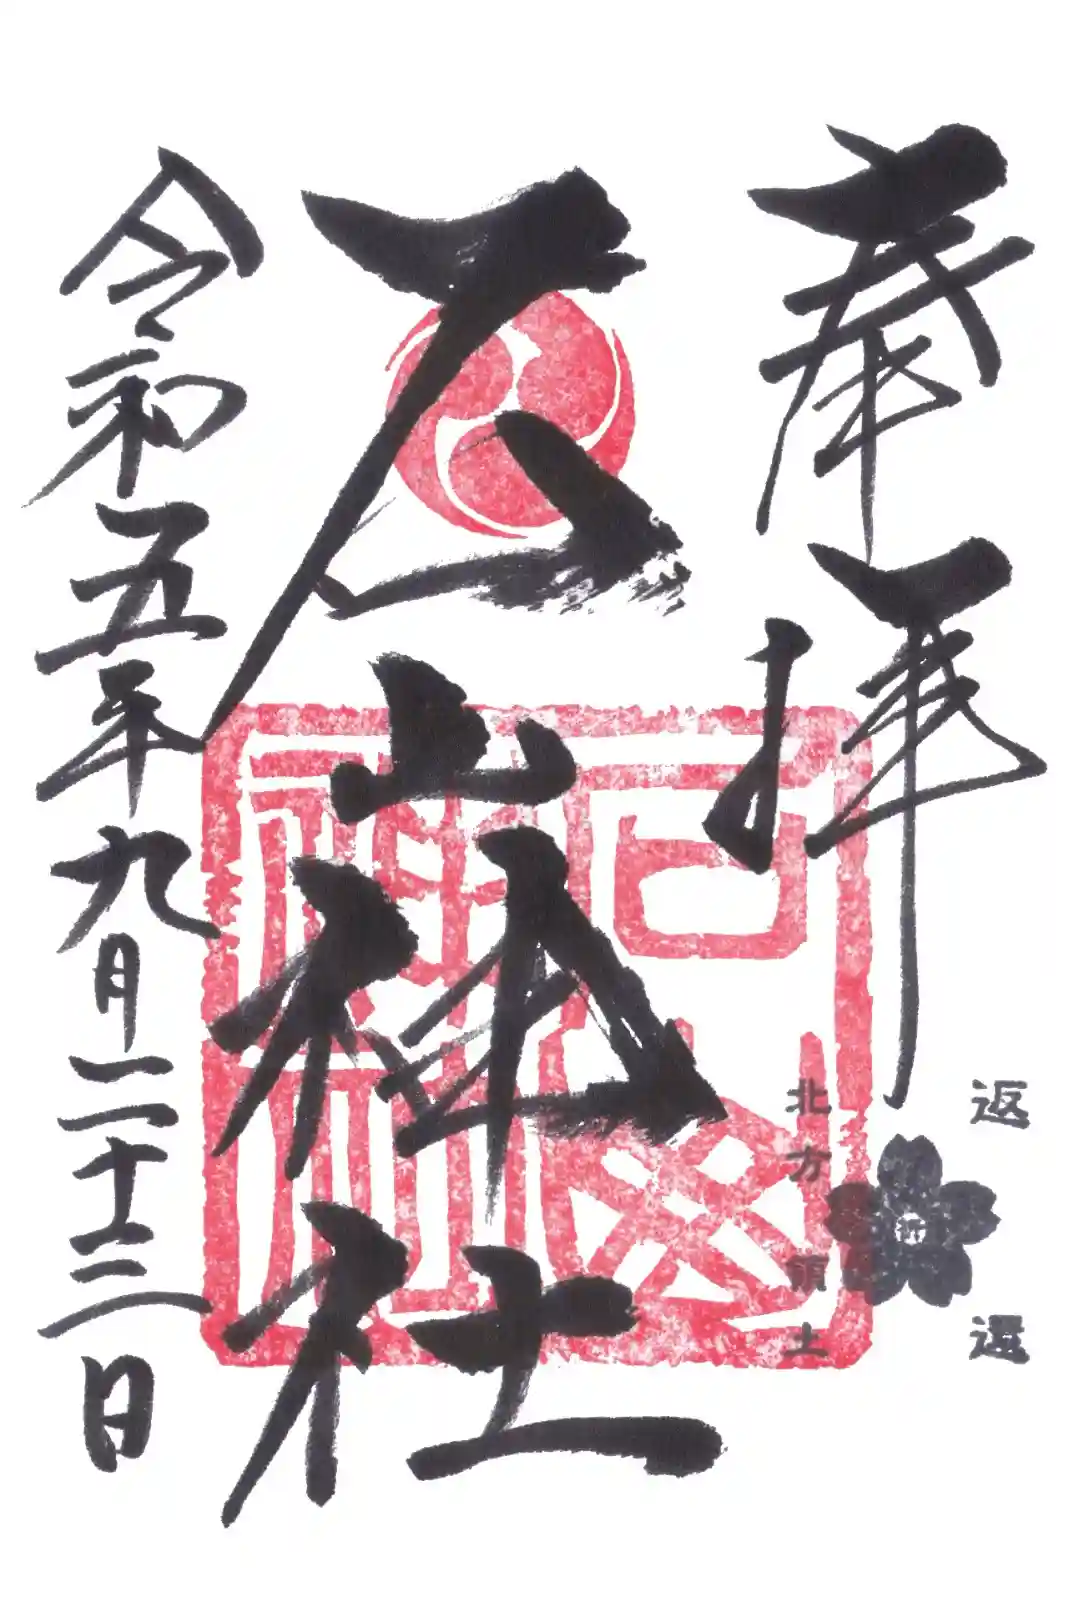 奉拝
返還
祈
北方領土
石山神社
石山神社
令和五年九月二十三日